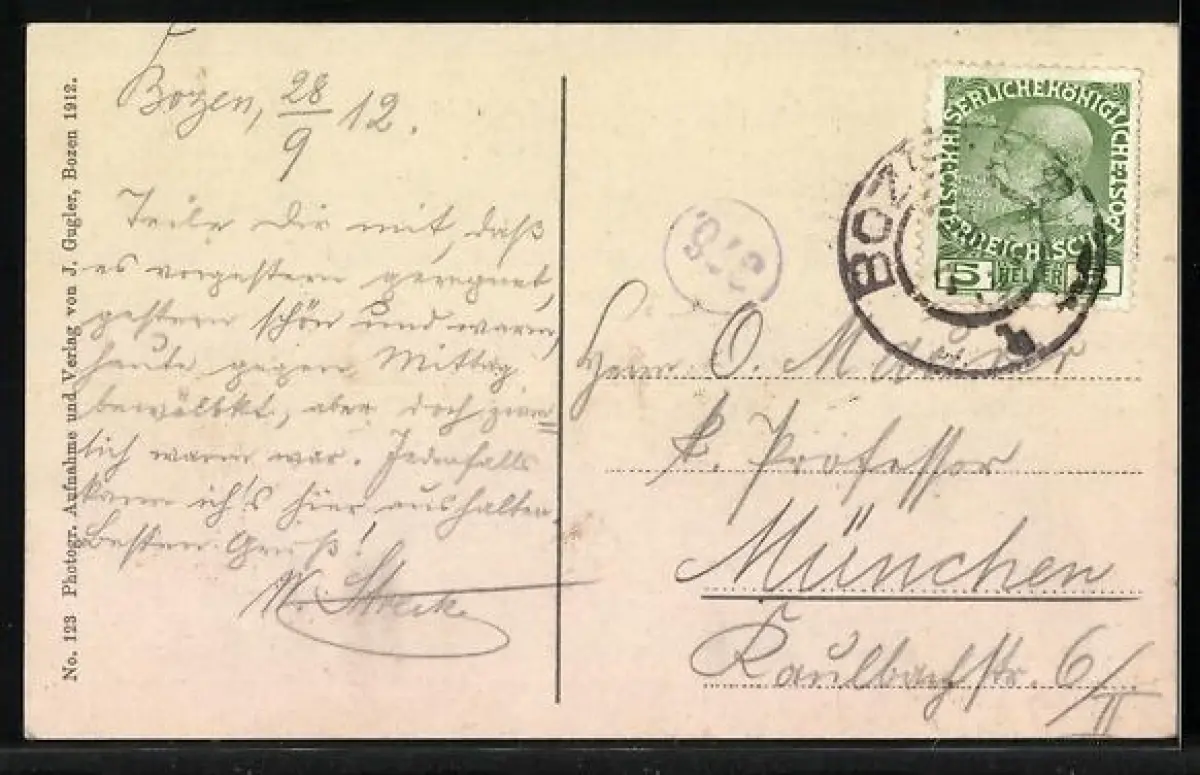 Bozen, 28/9 12.
Teile Dir mit, daß
es vorgestern geregnet,
gestern schön und warm,
heute gegen Mittag
bewölkt, aber doch ziem=
lich warm war. Jedenfalls
kann ich's hier aushalten.
Besten Gruß!
W. Streck
No. 123 Photogr. Aufnahme und Verlag von J. Gugler, Bozen 1912.
KAISERLICHE KÖNIGLICHE
ÖSTERREICHISCHE POST
5 HELLER
BOZ
378
Herrn O.
k. Professor
München
Kaulbachstr. 6/II